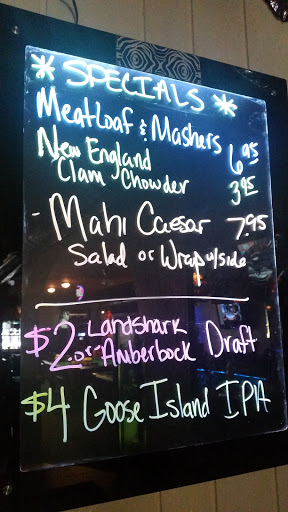 * SPECIALS *
Meatloaf & Mashers 6.95
New England
Clam Chowder 3.95
- Mahi Caesar 7.95
Salad or Wrap w/side
$2 - Landshark
or Amberbock Draft
$4 Goose Island IPA